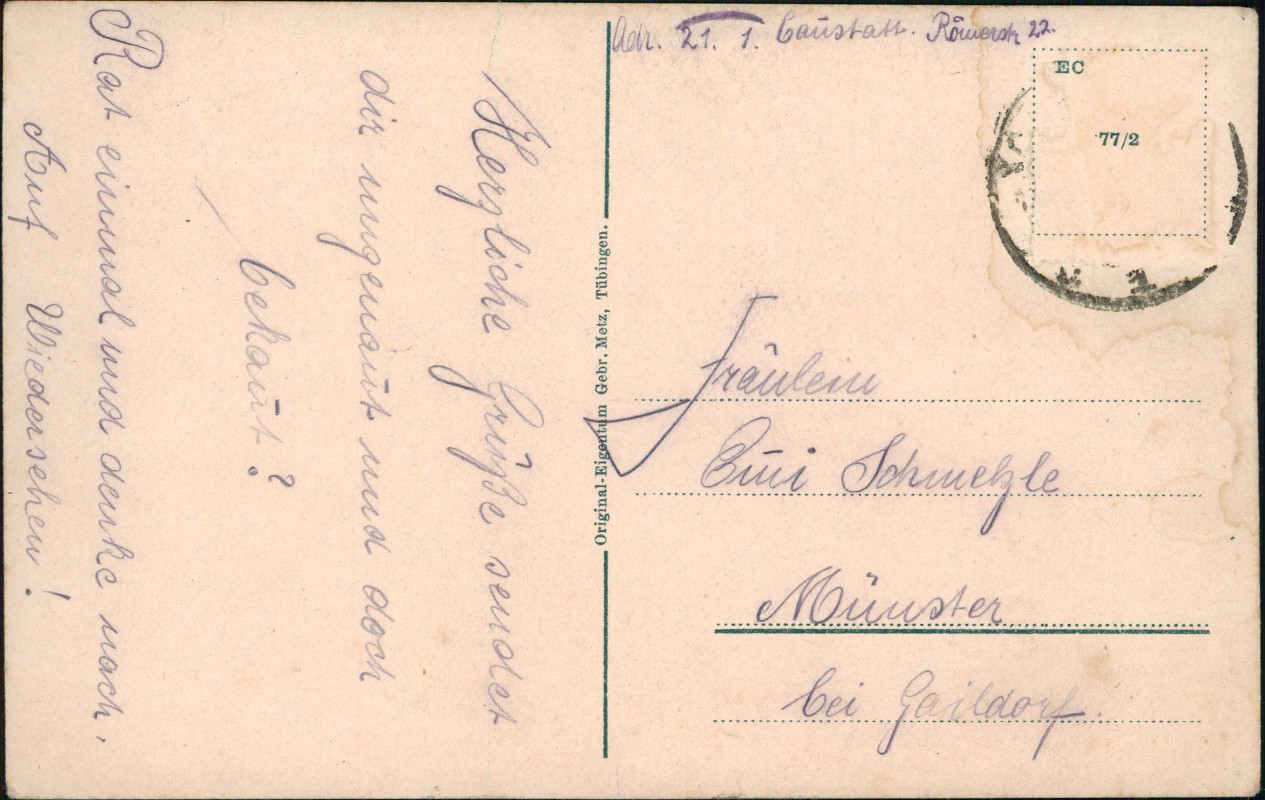 Adr. 21. 1. Caustatt. Römerstr 22.
EC
77/2
Herzliche Grüße sendet
dir ungenaūt und doch
bekaūt?
Rat einmal und denke nach,
Auf Wiedersehen!
Original-Eigentum Gebr. Metz, Tübingen.
Fräulein
Schmelzle
Münster
bei Gaildorf.